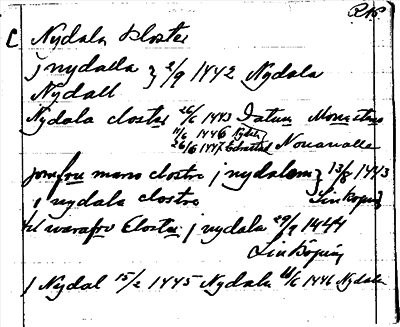 RAP.
C Nydala kloster
j nydalla } 2/9 1442 Nydala
Nydall
Nydala closter 26/6 1443 Datum Monasterio
11/6 1446 Nydala
26/6 1447 Nouaualle
jomfru marie clostre j nydalom } 13/8 1443
j nydala clostre Linköping
til warafru Closter j nydala 29/9 1444
Linköping
j Nydal 15/2 1445 Nydala 11/6 1446 Nydala